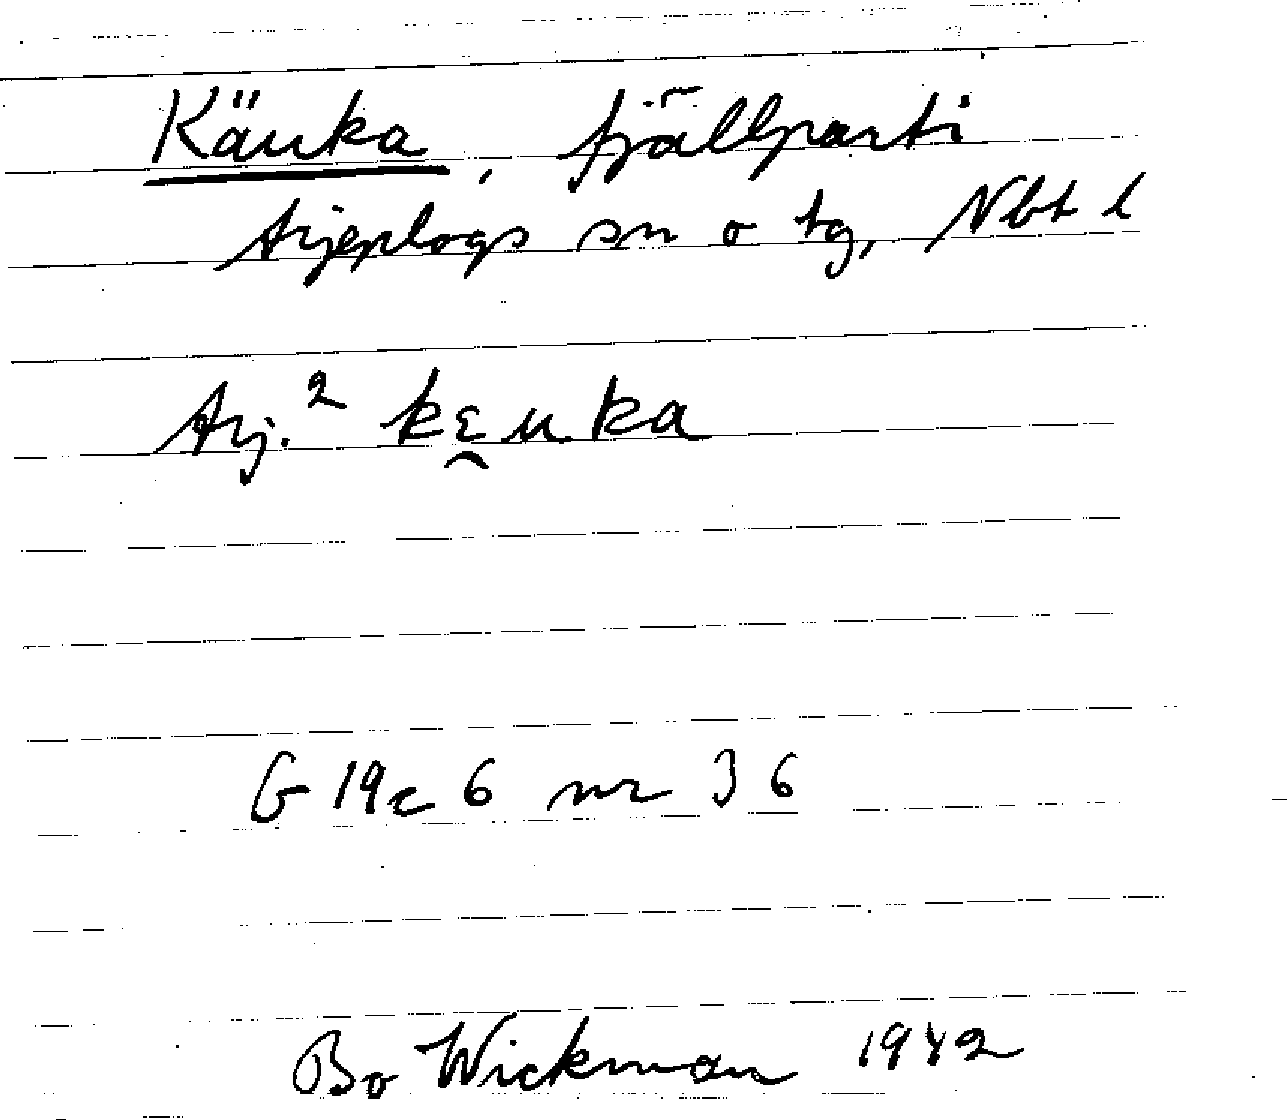 Käuka, fjällparti
Arjeplogs sn o tg, Nbt l
Arj.² kε̯uka
G 19c 6 nr 36
Bo Wickman 1942